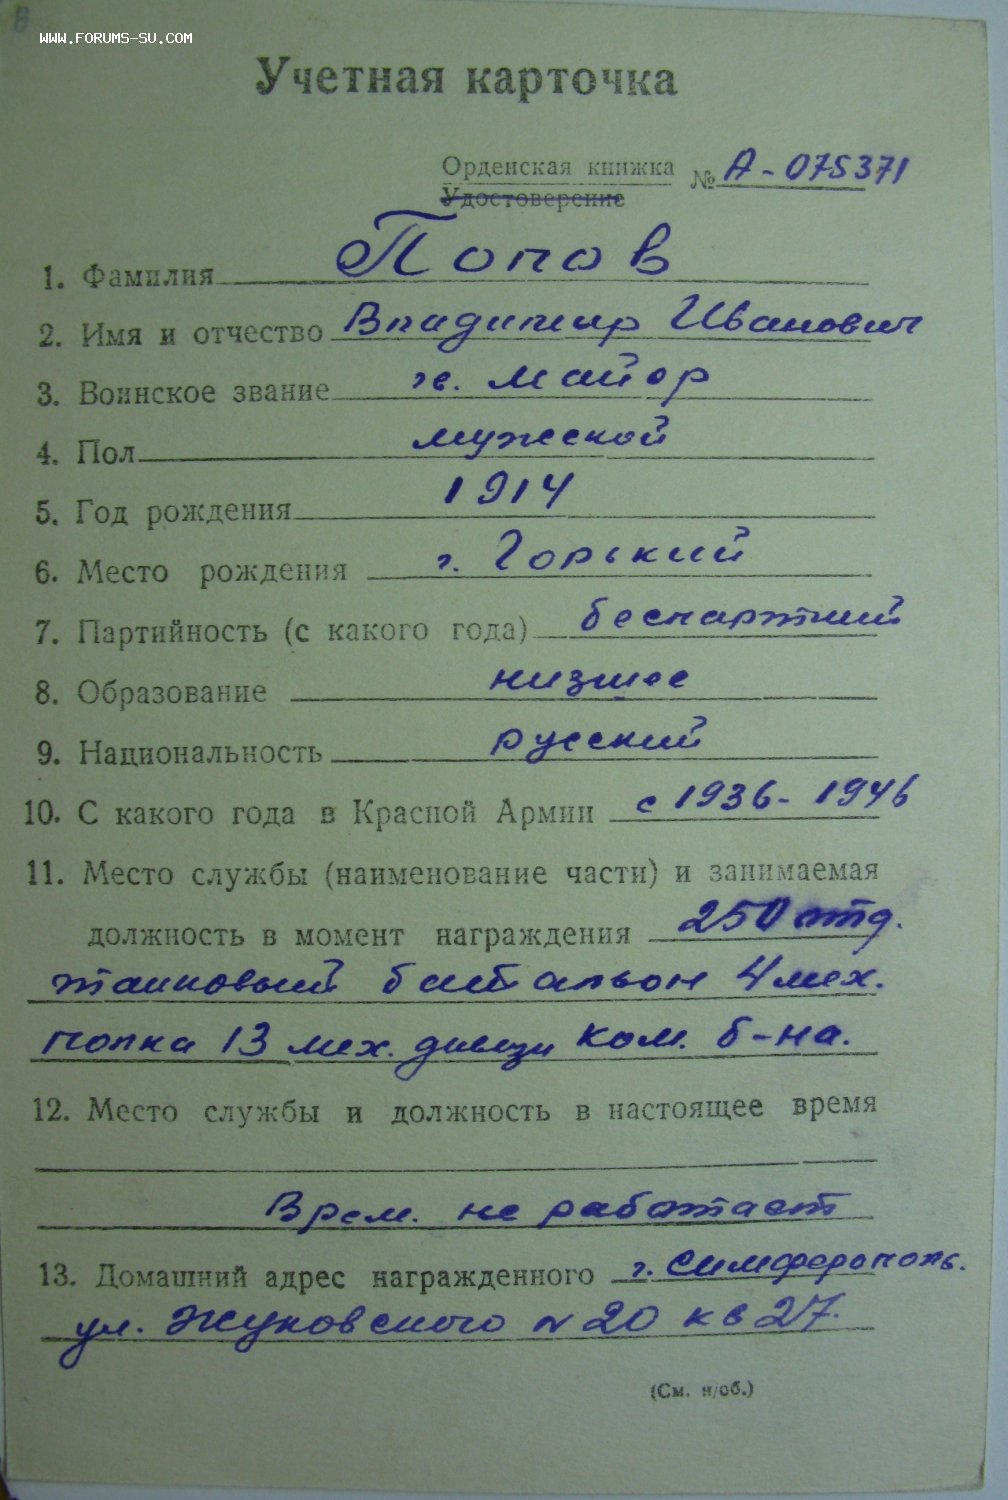 WWW.FORUMS-SU.COM
Учетная карточка
Орденская книжка № А-075371
Удостоверение
1. Фамилия Попов
2. Имя и отчество Владимир Иванович
3. Воинское звание гв. майор
4. Пол мужской
5. Год рождения 1914
6. Место рождения г. Горький
7. Партийность (с какого года) беспартий
8. Образование низшее
9. Национальность русский
10. С какого года в Красной Армии с 1936-1946
11. Место службы (наименование части) и занимаемая
должность в момент награждения 250 отд.
танковый батальон 4 мех.
полка 13 мех. дивизи ком. б-на.
12. Место службы и должность в настоящее время
Врем. не работает
13. Домашний адрес награжденного г. Симферополь.
ул. Жуковского N 20 кв 27.
(См. н/об.)